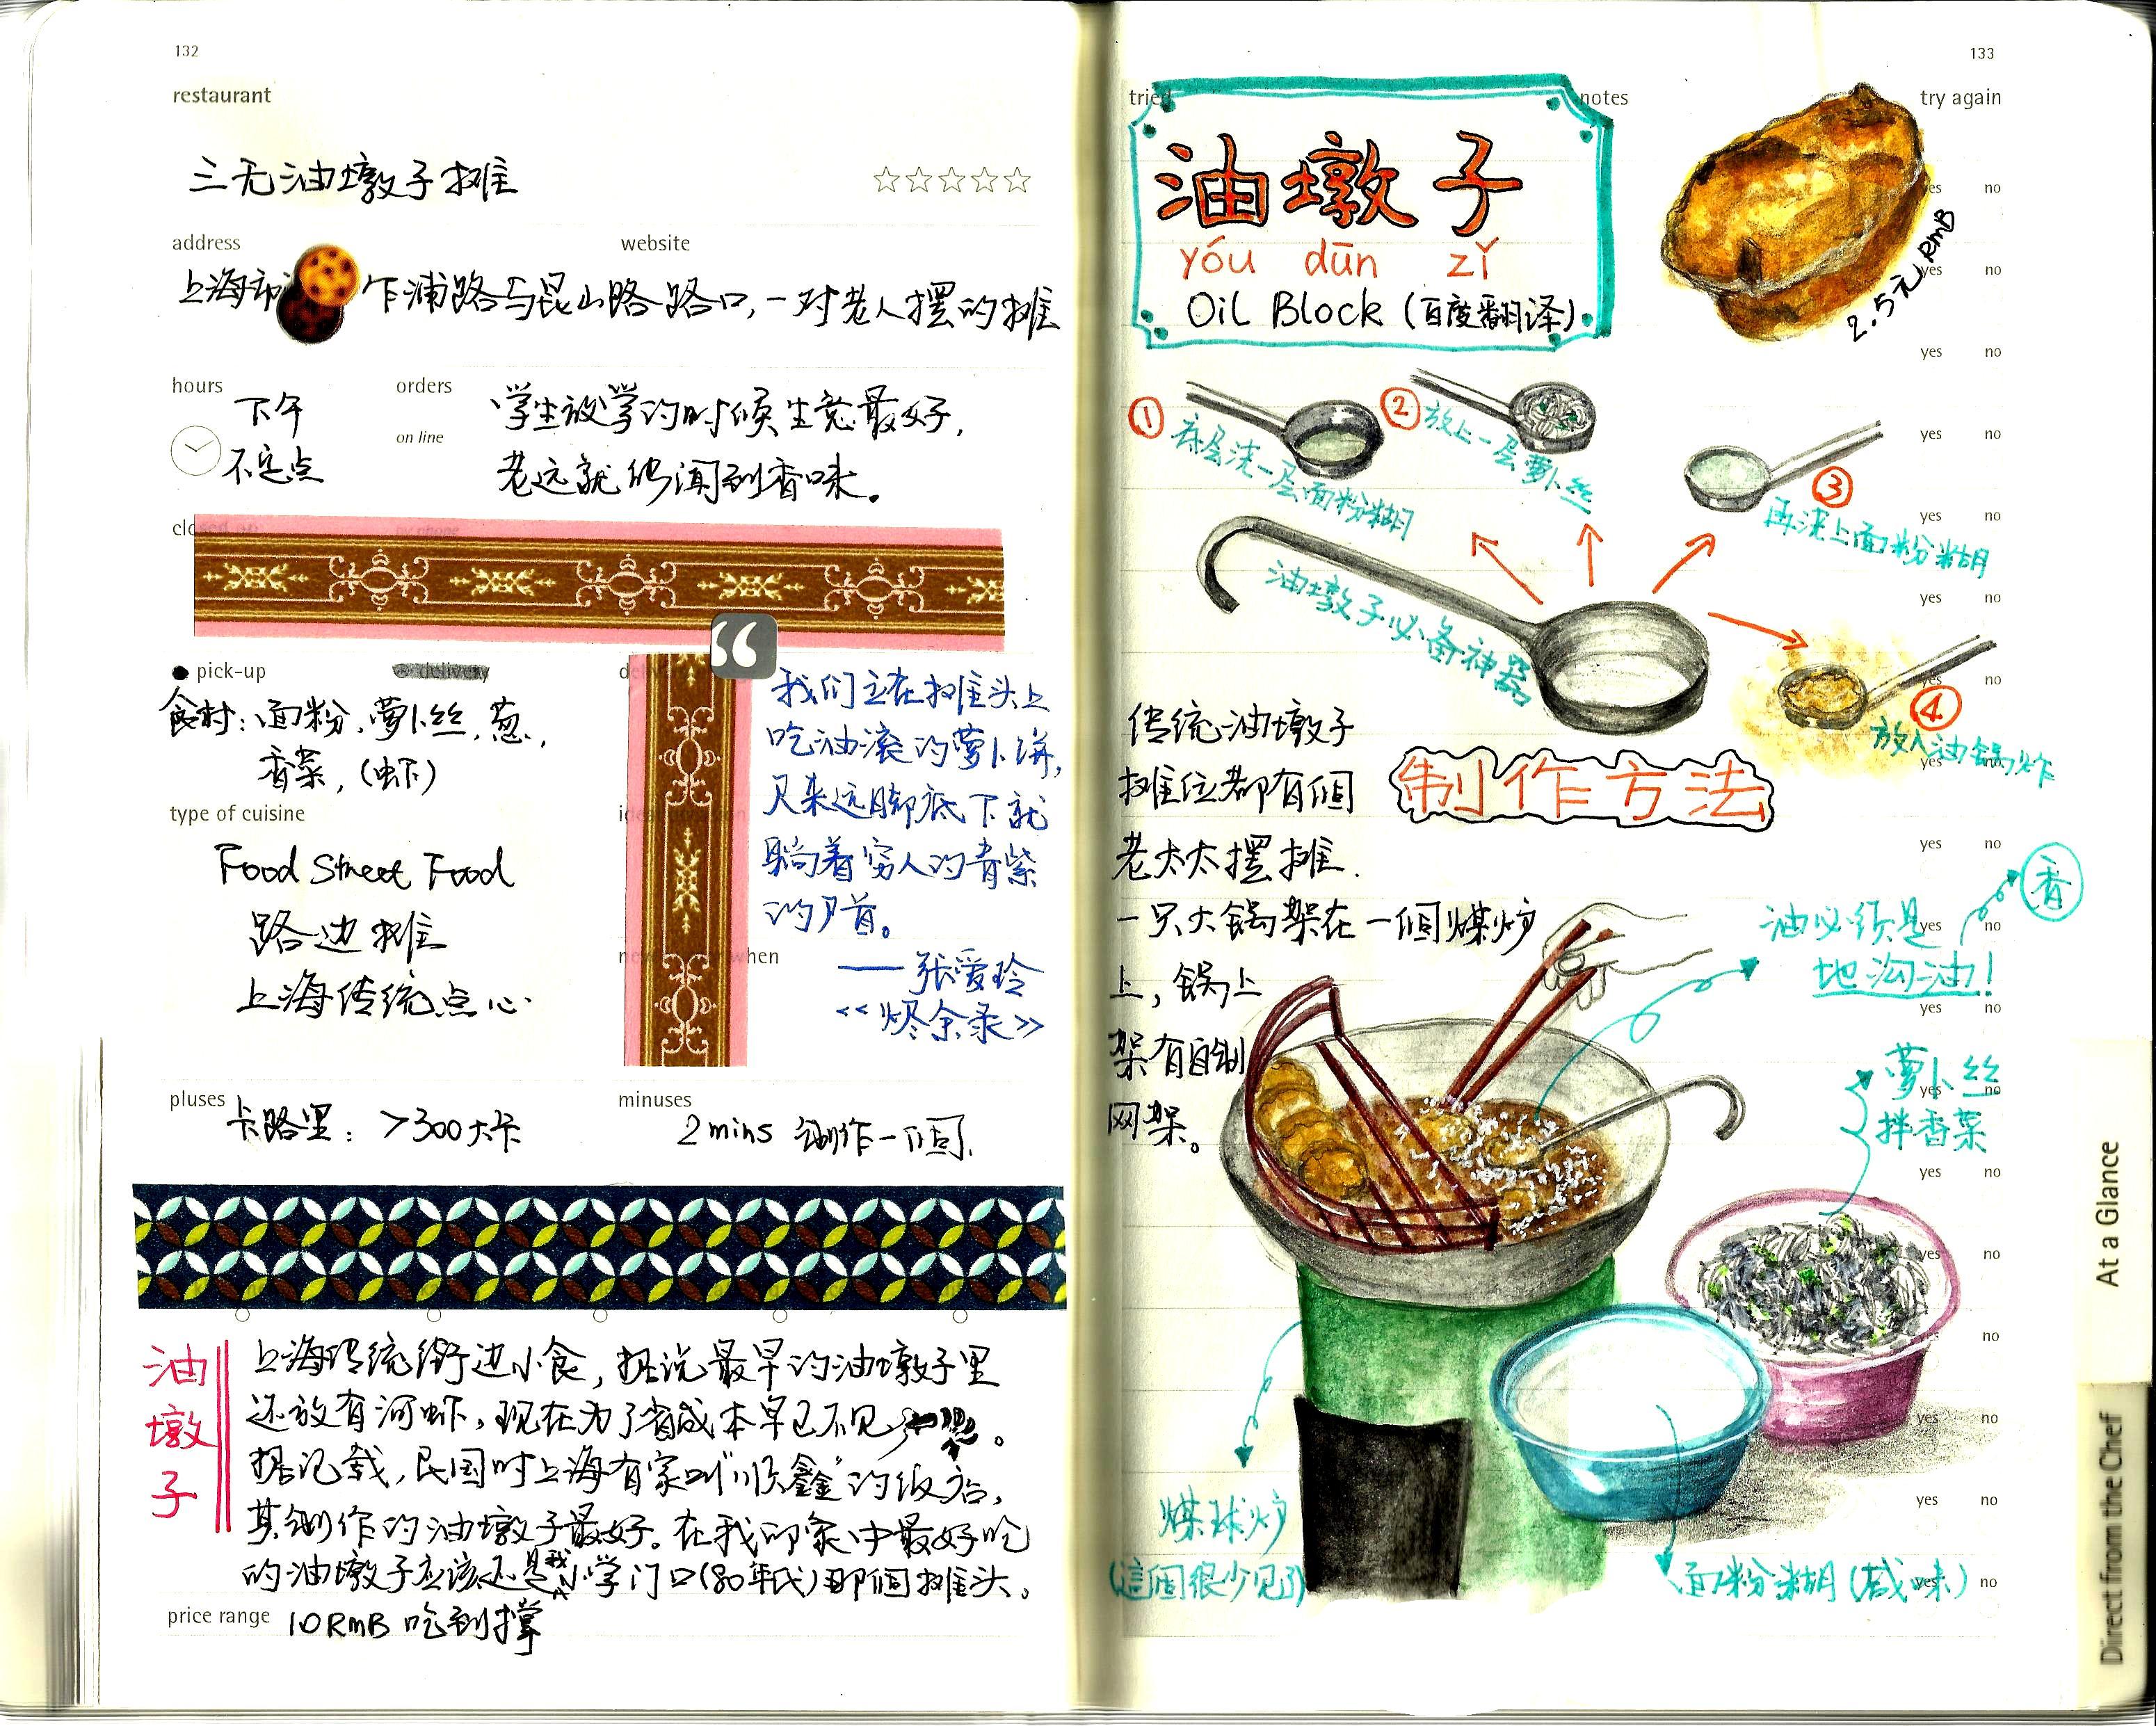 132
restaurant
三无油墩子摊
address
website
上海市
乍浦路与昆山路路口,一对老人摆的摊
hours
下午
不定点
orders
on line
学生放学的时候生意最好,
老远就能闻到香味。
pick-up
delivery
食材:面粉,萝卜丝,葱,
香菜,(虾)
type of cuisine
Food Street Food
路边摊
上海传统点心
“
我们立在摊头上
吃油滚的萝卜饼,
尺来远脚底下就
躺着穷人的青紫
的尸首。
——张爱玲
<<烬余录>>
when
pluses
卡路里: >300大卡
minuses
2mins 制作一個.
油墩子
上海传统街边小食,据说最早的油墩子里
还放有河虾,现在为了省成本早已不见
。
据记载,民国时上海有家叫“顺鑫”的饭店,
其制作的油墩子最好。在我印象中最好吃
的油墩子应该还是我小学门口(80年代)那個摊头。
price range
10RmB 吃到撑
133
tried
notes
try again
油墩子
yóu dūn zǐ
Oil Block (百度翻译)
2.5元.RmB
yes no
yes no
yes no
① 底层浇一层面粉糊
② 放上一层萝卜丝
③ 再浇上面粉糊
yes no
yes no
yes no
油墩子必备神器
④ 放入油锅炸
yes no
yes no
制作方法
传统油墩子
摊位都有個
老太太摆摊.
一只大锅架在一個煤炉
上,锅上
架有自制
网架。
yes no
香
油必须是
地沟油!
yes no
yes no
萝卜丝
拌香菜
yes no
yes no
yes no
yes no
yes no
yes no
煤球炉
(這個很少见了)
面粉糊(咸味)
yes no
At a Glance
Direct from the Chef